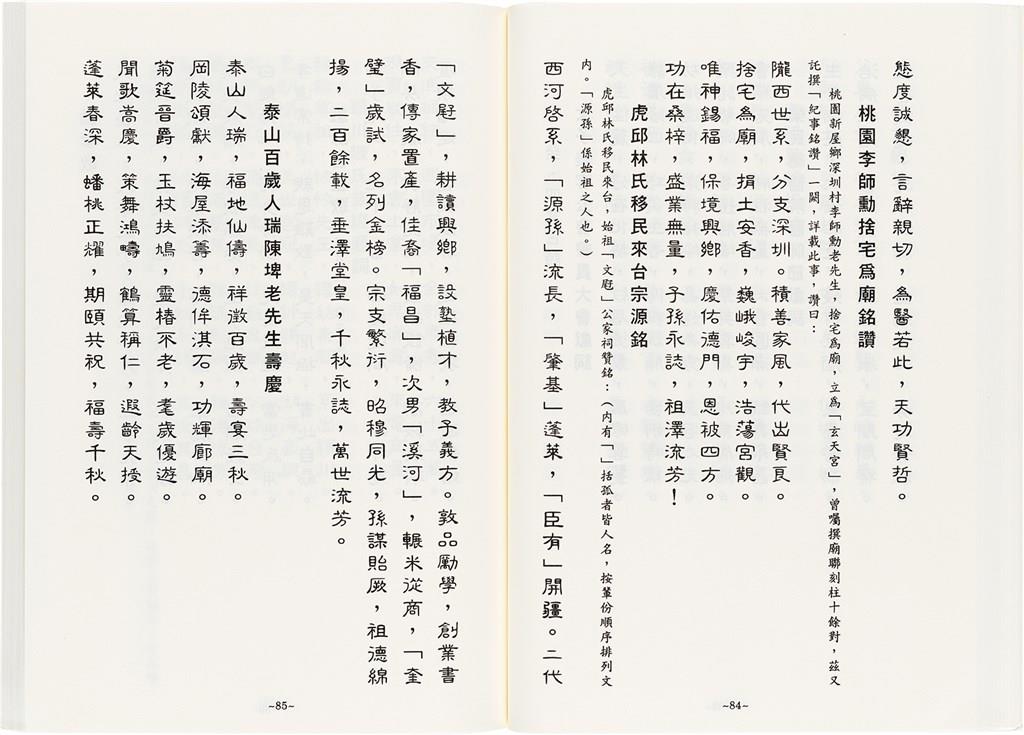 態度誠懇，言辭親切，為醫若此，天功賢哲。
桃園李師勳捨宅爲廟銘讚
桃園新屋鄉深圳村李師勳老先生，捨宅爲廟，立爲「玄天宮」，曾囑撰廟聯刻柱十餘對，茲又
託撰「紀事銘讚」一闋，詳載此事，讚曰：
隴西世系，分支深圳。積善家風，代出賢良。
捨宅為廟，捐土安香，巍峨峻宇，浩蕩宮觀。
唯神錫福，保境興鄉，慶佑德門，恩被四方。
功在桑梓，盛業無量，子孫永誌，祖澤流芳！
虎邱林氏移民來台宗源銘
虎邱林氏移民來台，始祖「文屘」公家祠贊銘：（內有「」括孤者皆人名，按輩份順序排列文
內。「源孫」係始祖之人也。）
西河啓系，「源孫」流長，「肇基」蓬萊，「臣有」開疆。二代
~84~
「文屘」，耕讀興鄉，設塾植才，教子義方。敦品勵學，創業書
香，傳家置產，佳裔「福昌」，次男「溪河」，輾米從商，「奎
璧」歲試，名列金榜。宗支繁衍，昭穆同光，孫謀貽厥，祖德綿
揚，二百餘載，垂澤堂皇，千秋永誌，萬世流芳。
泰山百歲人瑞陳埤老先生壽慶
泰山人瑞，福地仙儔，祥徵百歲，壽宴三秋。
岡陵頌獻，海屋添籌，德侔淇石，功輝廊廟。
菊筵晉爵，玉杖扶鳩，靈椿不老，耄歲優遊。
聞歌嵩慶，策舞鴻疇，鶴算稱仁，遐齡天授。
蓬萊春深，蟠桃正燿，期頤共祝，福壽千秋。
~85~